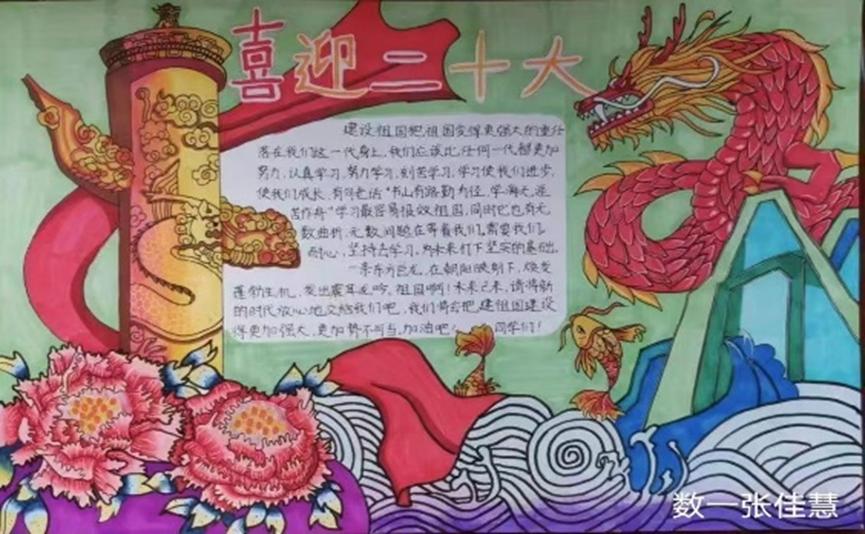 喜迎二十大
建设祖国把祖国变得更强大的重任
落在我们这一代身上,我们应该比任何一代都更加
努力,认真学习,努力学习,刻苦学习,学习使我们进步,
使我们成长,有句老话"书山有路勤为径,学海无涯
苦作舟"学习最容易报效祖国,同时它也有无
数曲折,无数问题在等着我们,需要我们
耐心,坚持去学习,为未来打下坚实的基础。
一条东方巨龙,在朝阳映射下,焕发
蓬勃生机,发出震耳龙吟,祖国啊!未来已来,请将新
的时代放心地交给我们吧,我们将会把建祖国建设
得更加强大,更加势不可当,加油吧!同学们!
数一张佳慧